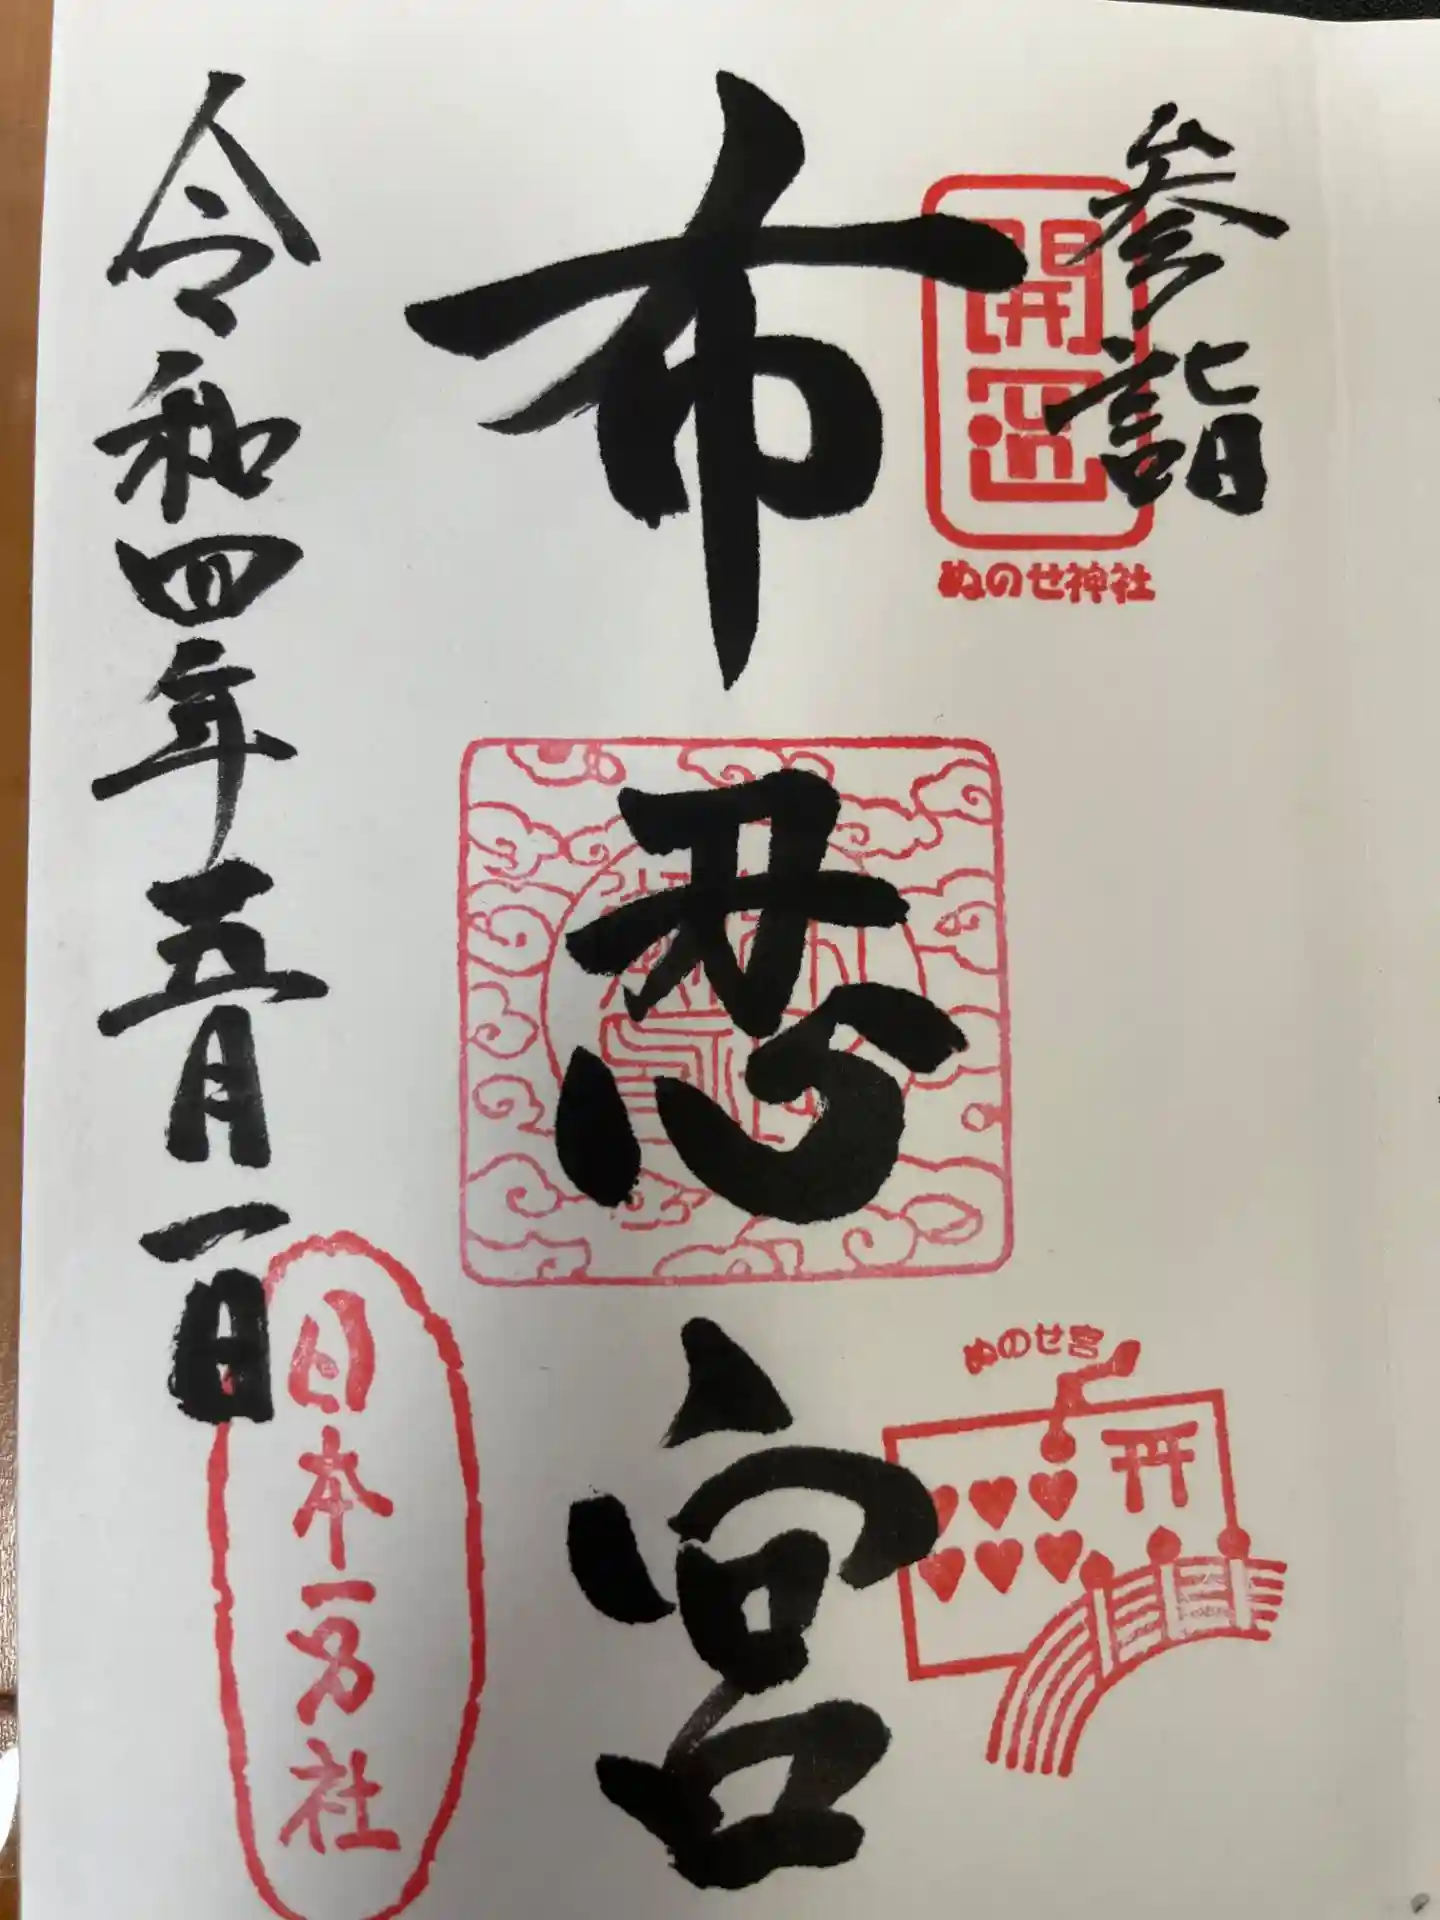 参詣
開運
ぬのせ神社
布忍宮
ぬのせ宮
令和四年五月一日
日本一男社